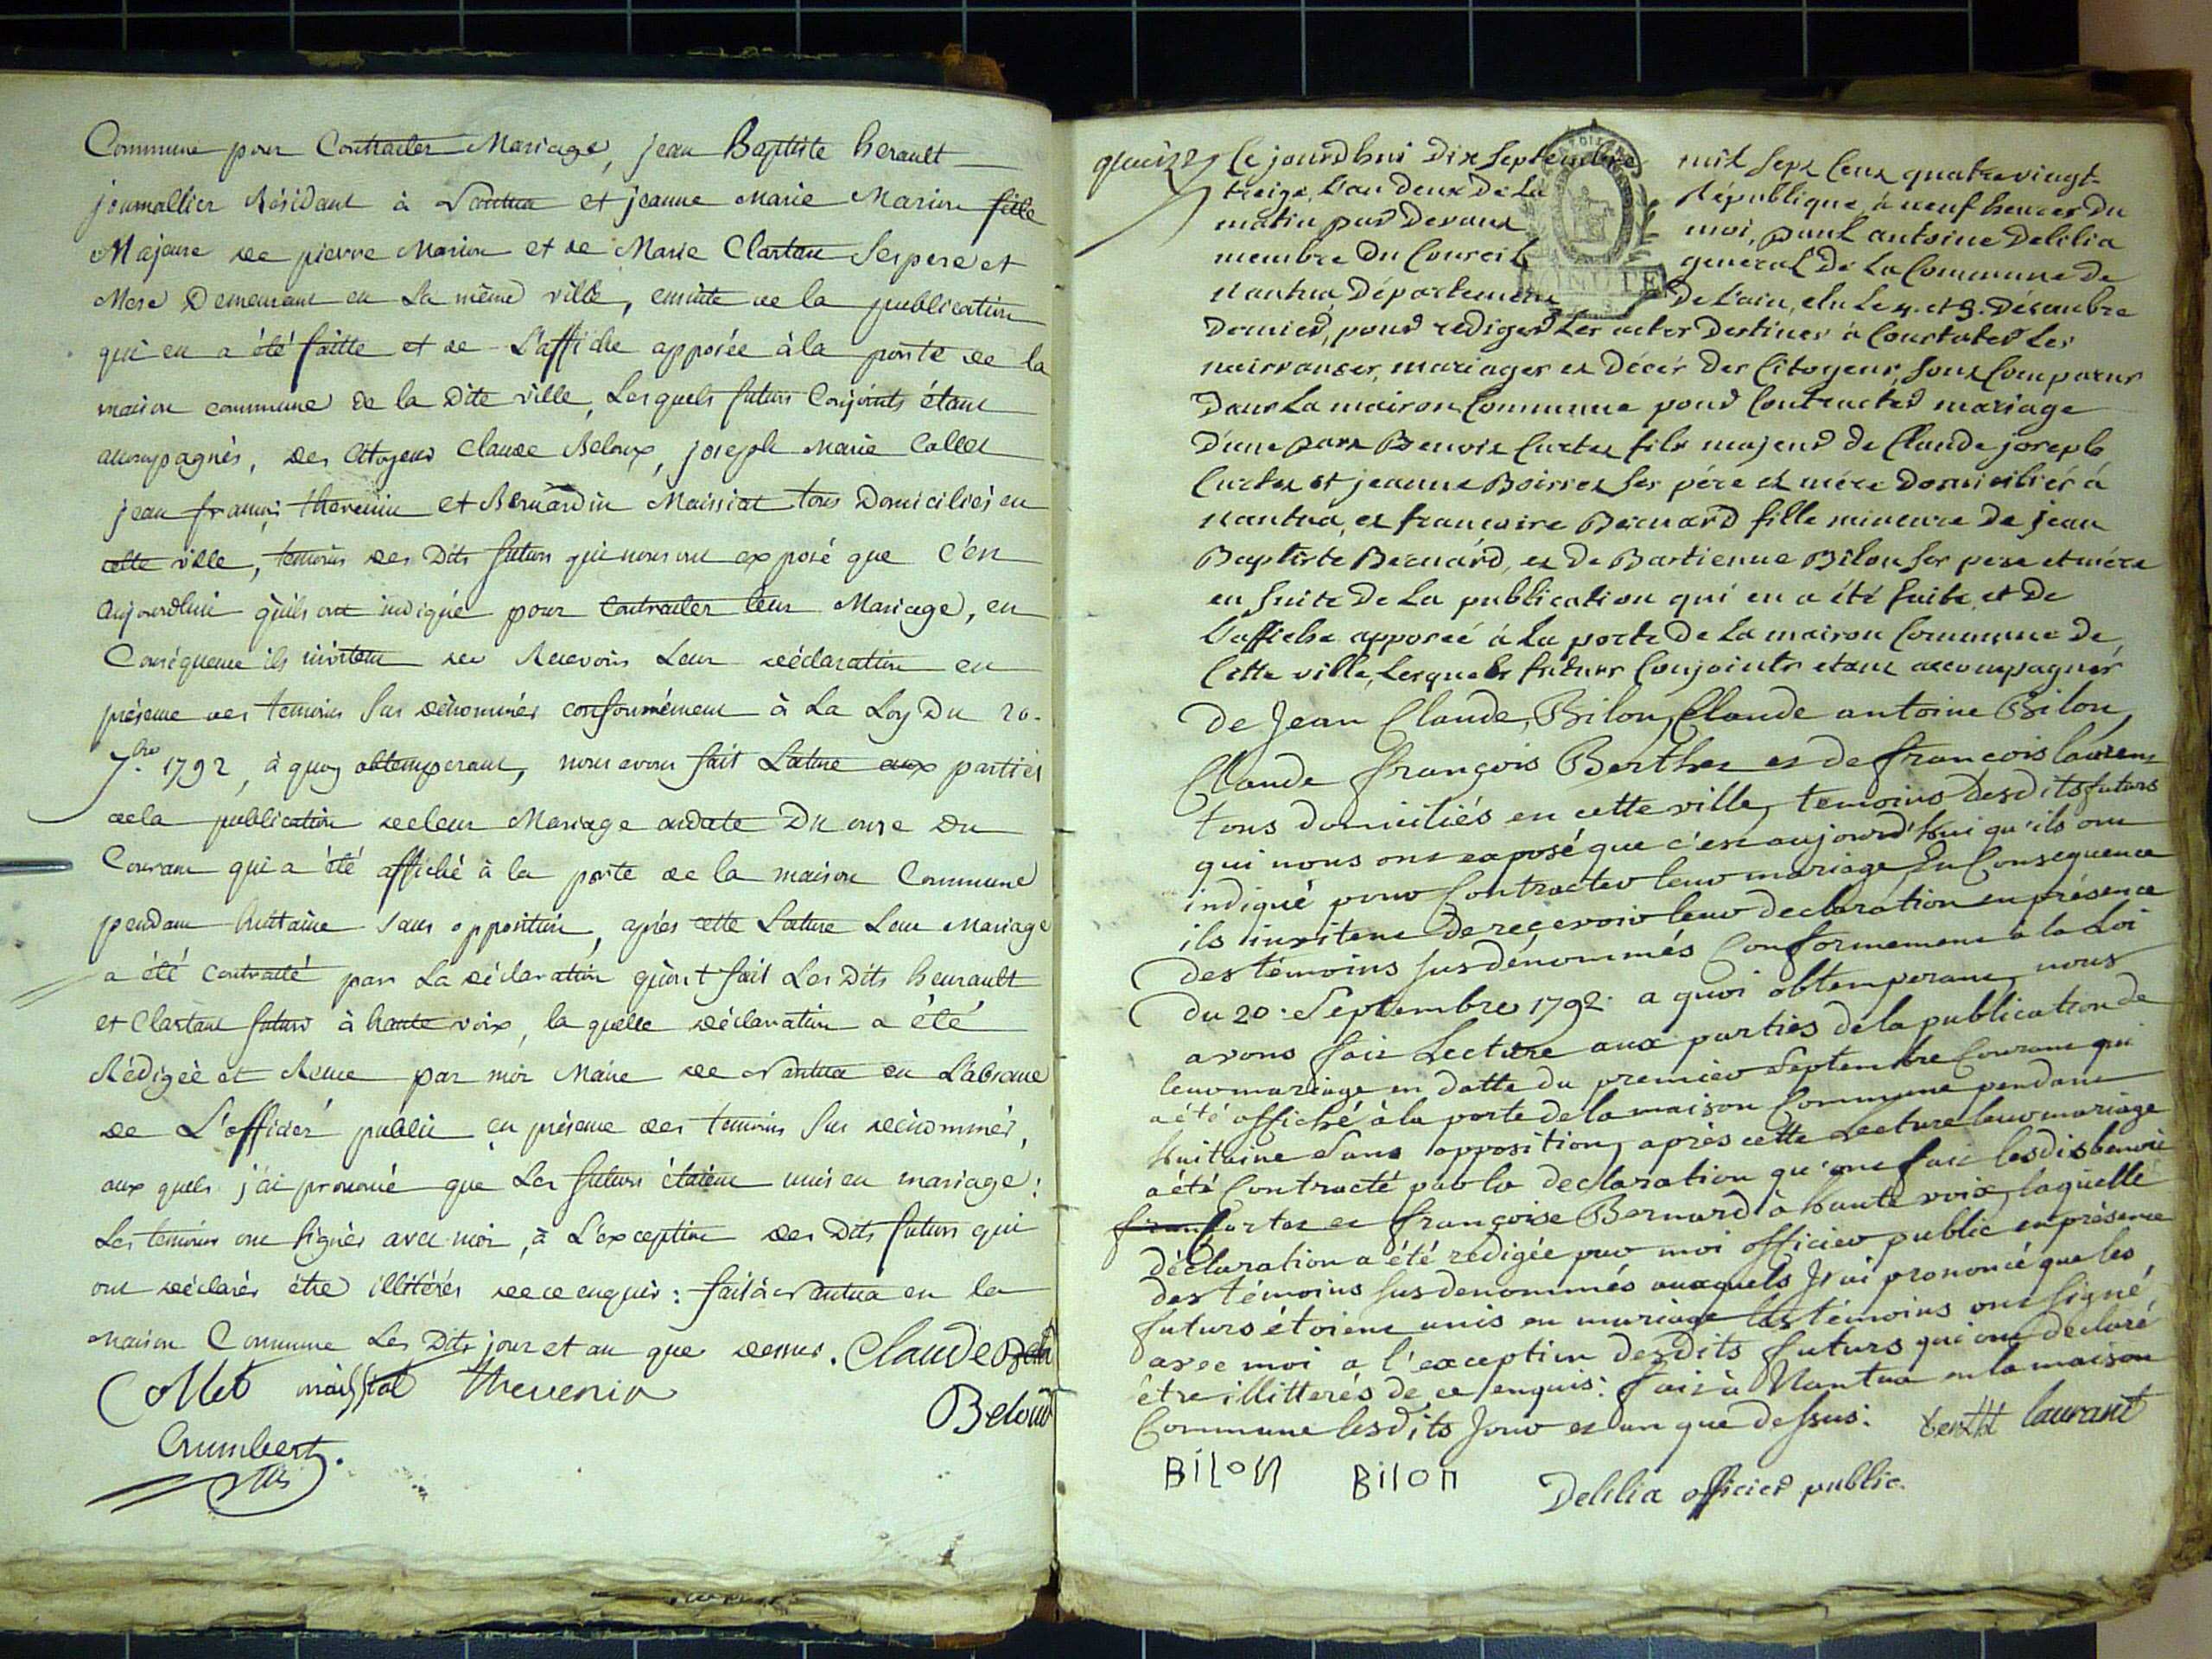 Commune pour Contracter Mariage, jean Baptiste herault
journallier Résidant à Nantua et jeanne Marie Marion fille
Majeure de pierre Marion et de Marie Clartan Ses pere et
Mere Demeurant en La même ville, ensuite de la publication
qui en a été faitte et de L'affiche apposée à la porte de la
maison commune de la Dite ville, Lesquels futurs Conjoints étant
accompagnés, des Citoyens Claude Beloux, joseph Marie Collet
jean françois thevenin et Bernardin Maissiat tous Domiciliés en
cette ville, temoins des Dits futurs qui nous ont exposé que C'est
Aujourdhui qu'ils ont indiqué pour Contracter leur Mariage, en
Conséquence ils invitent de Recevoir Leur déclaration en
présence des temoins Sus dénommés conformément à La Loy Du 20.
7.bre 1792, à quoy obtemperant, nous avons fait Lecture aux parties
de la publication de leur Mariage en date Du onze Du
Courant qui a été affiché à la porte de la maison Commune
pendant huitaine sans opposition, après cette Lecture Leur Mariage
a été contracté par La déclaration qu'ont fait Les Dits heurault
et Clartant futurs à haute voix, la quelle déclaration a été
Rédigée et Reçue par moi Maire de Nantua en L'absence
de L'officier public en présence des temoins Sus dénommés,
aux quels j'ai prononcé que Les futurs étaient unis en mariage:
Les temoins ont signés avec moi, à L'exception des Dits futurs qui
ont déclarés être illitérés de ce enquis: fait à Nantua en la
Maison Commune Les Dits jour et an que dessus. Claude
Collet maissiat thevenin
Beloux
Crumbert
quinze
Ce jourdhui Dix Septembre mil Sept Cent quatre vingt
treize, L'an Deux De La République, à neuf heures Du
matin par Devant moi, paul antoine Delilia
membre Du Conseil general De La Commune De
Nantua Département De L'ain, elu Le 4. et 9. Décembre
Dernier, pour rediger Les actes Destines à Constater Les
naissances, mariages et Décés Des Citoyens, Sont Comparus
Dans La maison Commune pour Contracter mariage
D'une part Benoit Curtet fils majeur de Claude joseph
Curtet et jeanne Boirret Ses pére et mére Domiciliés á
Nantua, et francoise Bernard fille mineure De jean
Baptiste Bernard, et De Bastienne Bilon Ses pere et mére
en Suite De La publication qui en a été faite, et De
L'affiche apposeé á La porte De La maison Commune De
Cette ville, Lesquels futurs Conjoints etant accompagnes
De Jean Claude Bilon, Claude antoine Bilon,
Claude françois Berthet et de françois laurent
tous domiciliés en cette ville, temoins desdits futurs
qui nous ont exposé que c'est aujourd'hui qu'ils ont
indiqué pour Contracter leur mariage En Consequence
ils invitent de recevoir leur declaration en présence
des témoins Susdénommés Conformement a la Loi
du 20. Septembre 1792. a quoi obtemperant, nous
avons fait Lecture aux parties de la publication de
leur mariage en datte du premier Septembre Courant qui
a été affiché à la porte de la maison Commune pendant
huitaine Sans opposition, après cette Lecture leur mariage
a été Contracté par la declaration qu'ont fait lesdits benoit
Curtet et françoise Bernard à haute voix, laquelle
déclaration a été redigée par moi officier public en présence
des témoins Susdenommés auxquels J'ai prononcé que les
futurs étoient unis en mariage les témoins ont Signé
avec moi a l'exception desdits futurs qui ont déclaré
être illitterés de ce enquis: fait à Nantua en la maison
Commune lesdits Jour et an que dessus:
berthet laurant
BiLON BilON
Delilia officier public.
MINUTE